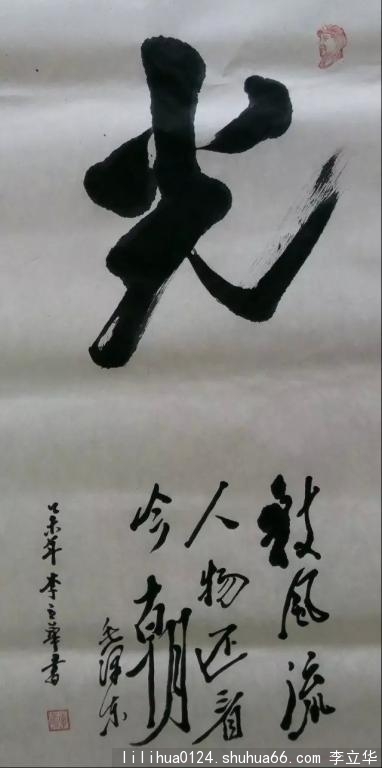 光
数风流
人物还看
今朝
毛泽东
乙未年李立華书
lilihua0124.shuhua66.com 李立华